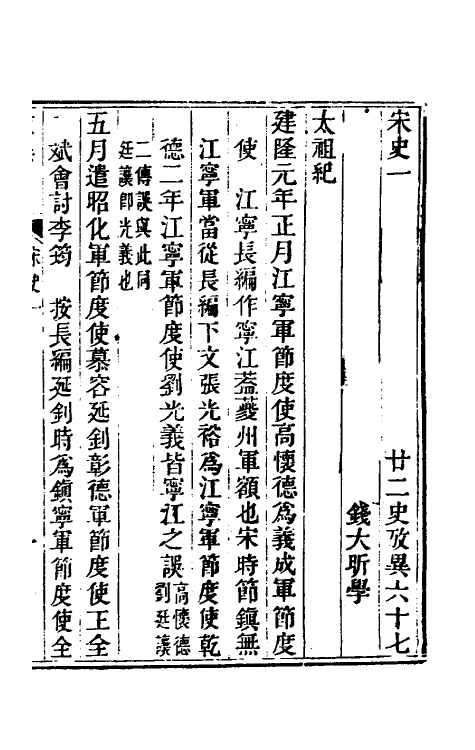 宋史一 廿二史攷異六十七
錢大昕學
太祖紀
建隆元年正月江寧軍節度使高懷德為義成軍節度
使 江寧長編作寧江葢夔州軍額也宋時節鎮無
江寧軍當從長編下文張光裕為江寧軍節度使乾
德二年江寧軍節度使劉光義皆寧江之誤高懷德
劉廷讓
二傳誤與此同
廷讓即光義也
五月遣昭化軍節度使慕容延釗彰德軍節度使王全
斌會討李筠 按長編延釗時為鎮寧軍節度使全
宋史一